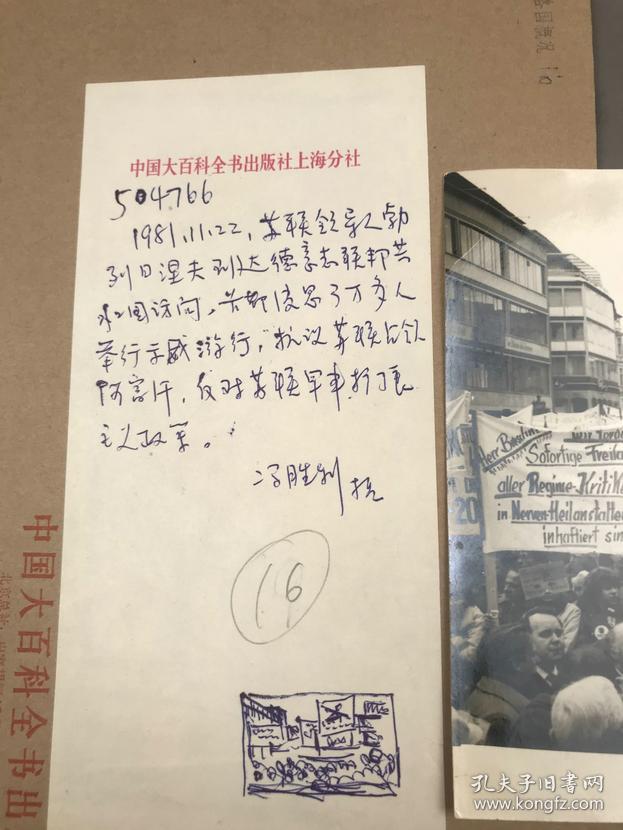 各国概况 110
中国大百科全书出版社上海分社
504766
1981.11.22,苏联领导人勃
列日涅夫到达德意志联邦共
和国访问,首都波恩3万多人
举行示威游行,抗议苏联占领
阿富汗,反对苏联军事扩张
主义政策。
冯胜利 摄
16
中国大百科全书出
Herr Breschn
Wir forde
Sofortige Freila
aller Regime-Kritik
in Nerven-Heilanstalte
inhaftiert sin
20
孔夫子旧书网
www.kongfz.com